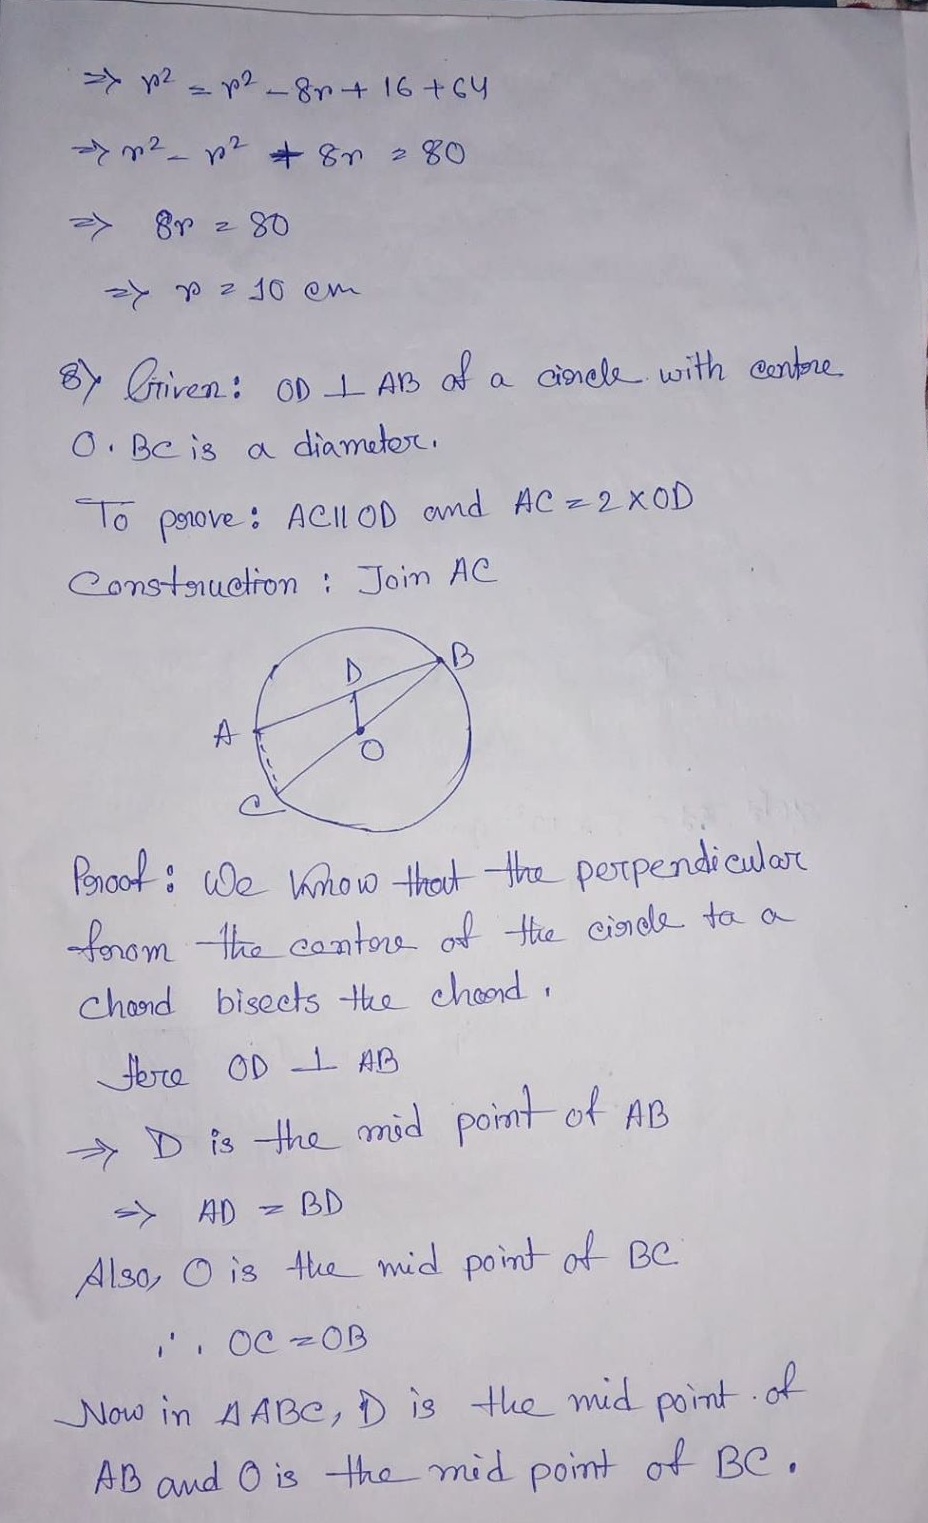 ⇒ r² = r² - 8r + 16 + 64
⇒ r² - r² + 8r = 80
⇒ 8r = 80
⇒ r = 10 cm
8) Given: OD ⊥ AB of a circle with centre
O. BC is a diameter.
To prove: AC || OD and AC = 2 × OD
Construction : Join AC
D
B
A
O
C
Proof : We know that the perpendicular
from the centre of the circle to a
chord bisects the chord.
Here OD ⊥ AB
⇒ D is the mid point of AB
⇒ AD = BD
Also, O is the mid point of BC
∴ OC = OB
Now in ΔABC, D is the mid point of
AB and O is the mid point of BC.